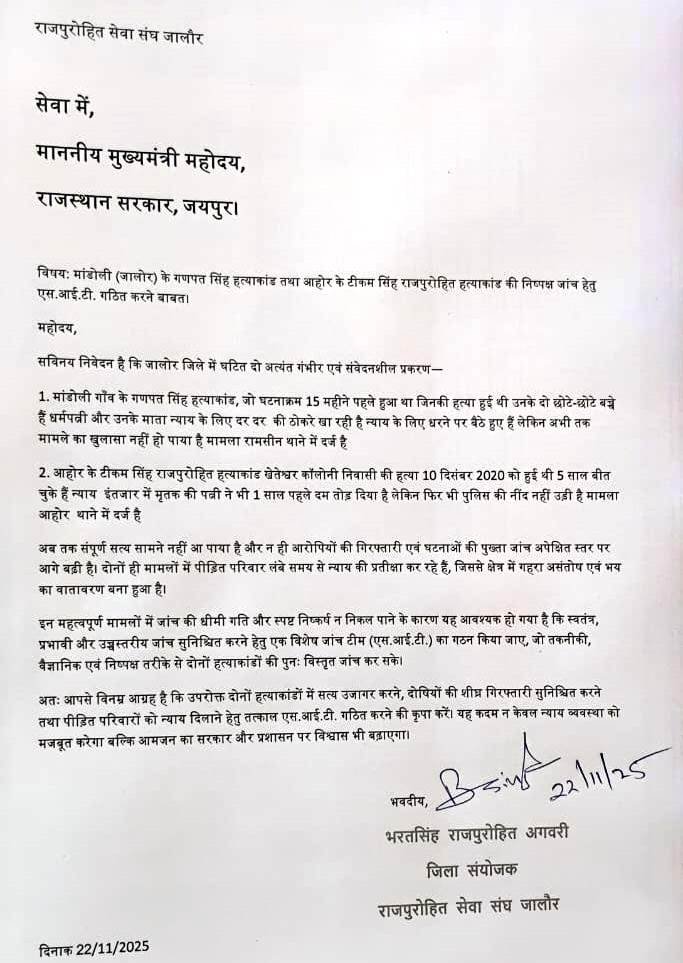 राजपुरोहित सेवा संघ जालौर
सेवा में,
माननीय मुख्यमंत्री महोदय,
राजस्थान सरकार, जयपुर।
विषय: मांडोली (जालोर) के गणपत सिंह हत्याकांड तथा आहोर के टीकम सिंह राजपुरोहित हत्याकांड की निष्पक्ष जांच हेतु
एस.आई.टी. गठित करने बाबत।
महोदय,
सविनय निवेदन है कि जालोर जिले में घटित दो अत्यंत गंभीर एवं संवेदनशील प्रकरण—
1. मांडोली गाँव के गणपत सिंह हत्याकांड, जो घटनाक्रम 15 महीने पहले हुआ था जिनकी हत्या हुई थी उनके दो छोटे-छोटे बच्चे
हैं धर्मपत्नी और उनके माता न्याय के लिए दर दर की ठोकरे खा रही है न्याय के लिए धरने पर बैठे हुए हैं लेकिन अभी तक
मामले का खुलासा नहीं हो पाया है मामला रामसीन थाने में दर्ज है
2. आहोर के टीकम सिंह राजपुरोहित हत्याकांड खेतेश्वर कॉलोनी निवासी की हत्या 10 दिसंबर 2020 को हुई थी 5 साल बीत
चुके हैं न्याय इंतजार में मृतक की पत्नी ने भी 1 साल पहले दम तोड़ दिया है लेकिन फिर भी पुलिस की नींद नहीं उड़ी है मामला
आहोर थाने में दर्ज है
अब तक संपूर्ण सत्य सामने नहीं आ पाया है और न ही आरोपियों की गिरफ्तारी एवं घटनाओं की पुख्ता जांच अपेक्षित स्तर पर
आगे बढ़ी है। दोनों ही मामलों में पीड़ित परिवार लंबे समय से न्याय की प्रतीक्षा कर रहे हैं, जिससे क्षेत्र में गहरा असंतोष एवं भय
का वातावरण बना हुआ है।
इन महत्वपूर्ण मामलों में जांच की धीमी गति और स्पष्ट निष्कर्ष न निकल पाने के कारण यह आवश्यक हो गया है कि स्वतंत्र,
प्रभावी और उच्चस्तरीय जांच सुनिश्चित करने हेतु एक विशेष जांच टीम (एस.आई.टी.) का गठन किया जाए, जो तकनीकी,
वैज्ञानिक एवं निष्पक्ष तरीके से दोनों हत्याकांडों की पुनः विस्तृत जांच कर सके।
अतः आपसे विनम्र आग्रह है कि उपरोक्त दोनों हत्याकांडों में सत्य उजागर करने, दोषियों की शीघ्र गिरफ्तारी सुनिश्चित करने
तथा पीड़ित परिवारों को न्याय दिलाने हेतु तत्काल एस.आई.टी. गठित करने की कृपा करें। यह कदम न केवल न्याय व्यवस्था को
मजबूत करेगा बल्कि आमजन का सरकार और प्रशासन पर विश्वास भी बढ़ाएगा।
भवदीय, 22/11/25
भरतसिंह राजपुरोहित अगवरी
जिला संयोजक
राजपुरोहित सेवा संघ जालौर
दिनाक 22/11/2025